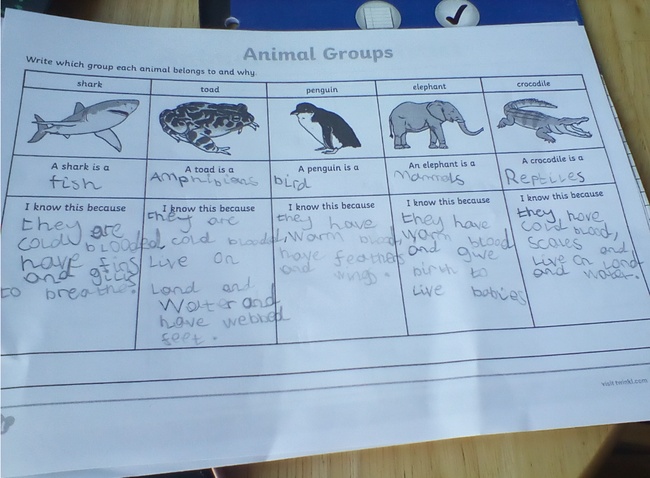 Animal Groups
Write which group each animal belongs to and why.
shark
toad
penguin
elephant
crocodile
A shark is a
fish
A toad is a
Amphibians
A penguin is a
bird
An elephant is a
Mammals
A crocodile is a
Reptiles
I know this because
they are
cold blooded
have fins
and gills
to breathe.
I know this because
they are
cold blooded,
Live on
Land and
Water and
have webbed
feet.
I know this because
they have
warm blood,
have feathers
and wings.
I know this because
they have
warm blood
and give
birth to
live babies
I know this because
they have
cold blood,
scales and
Live on land
and water.
visit twinkl.com